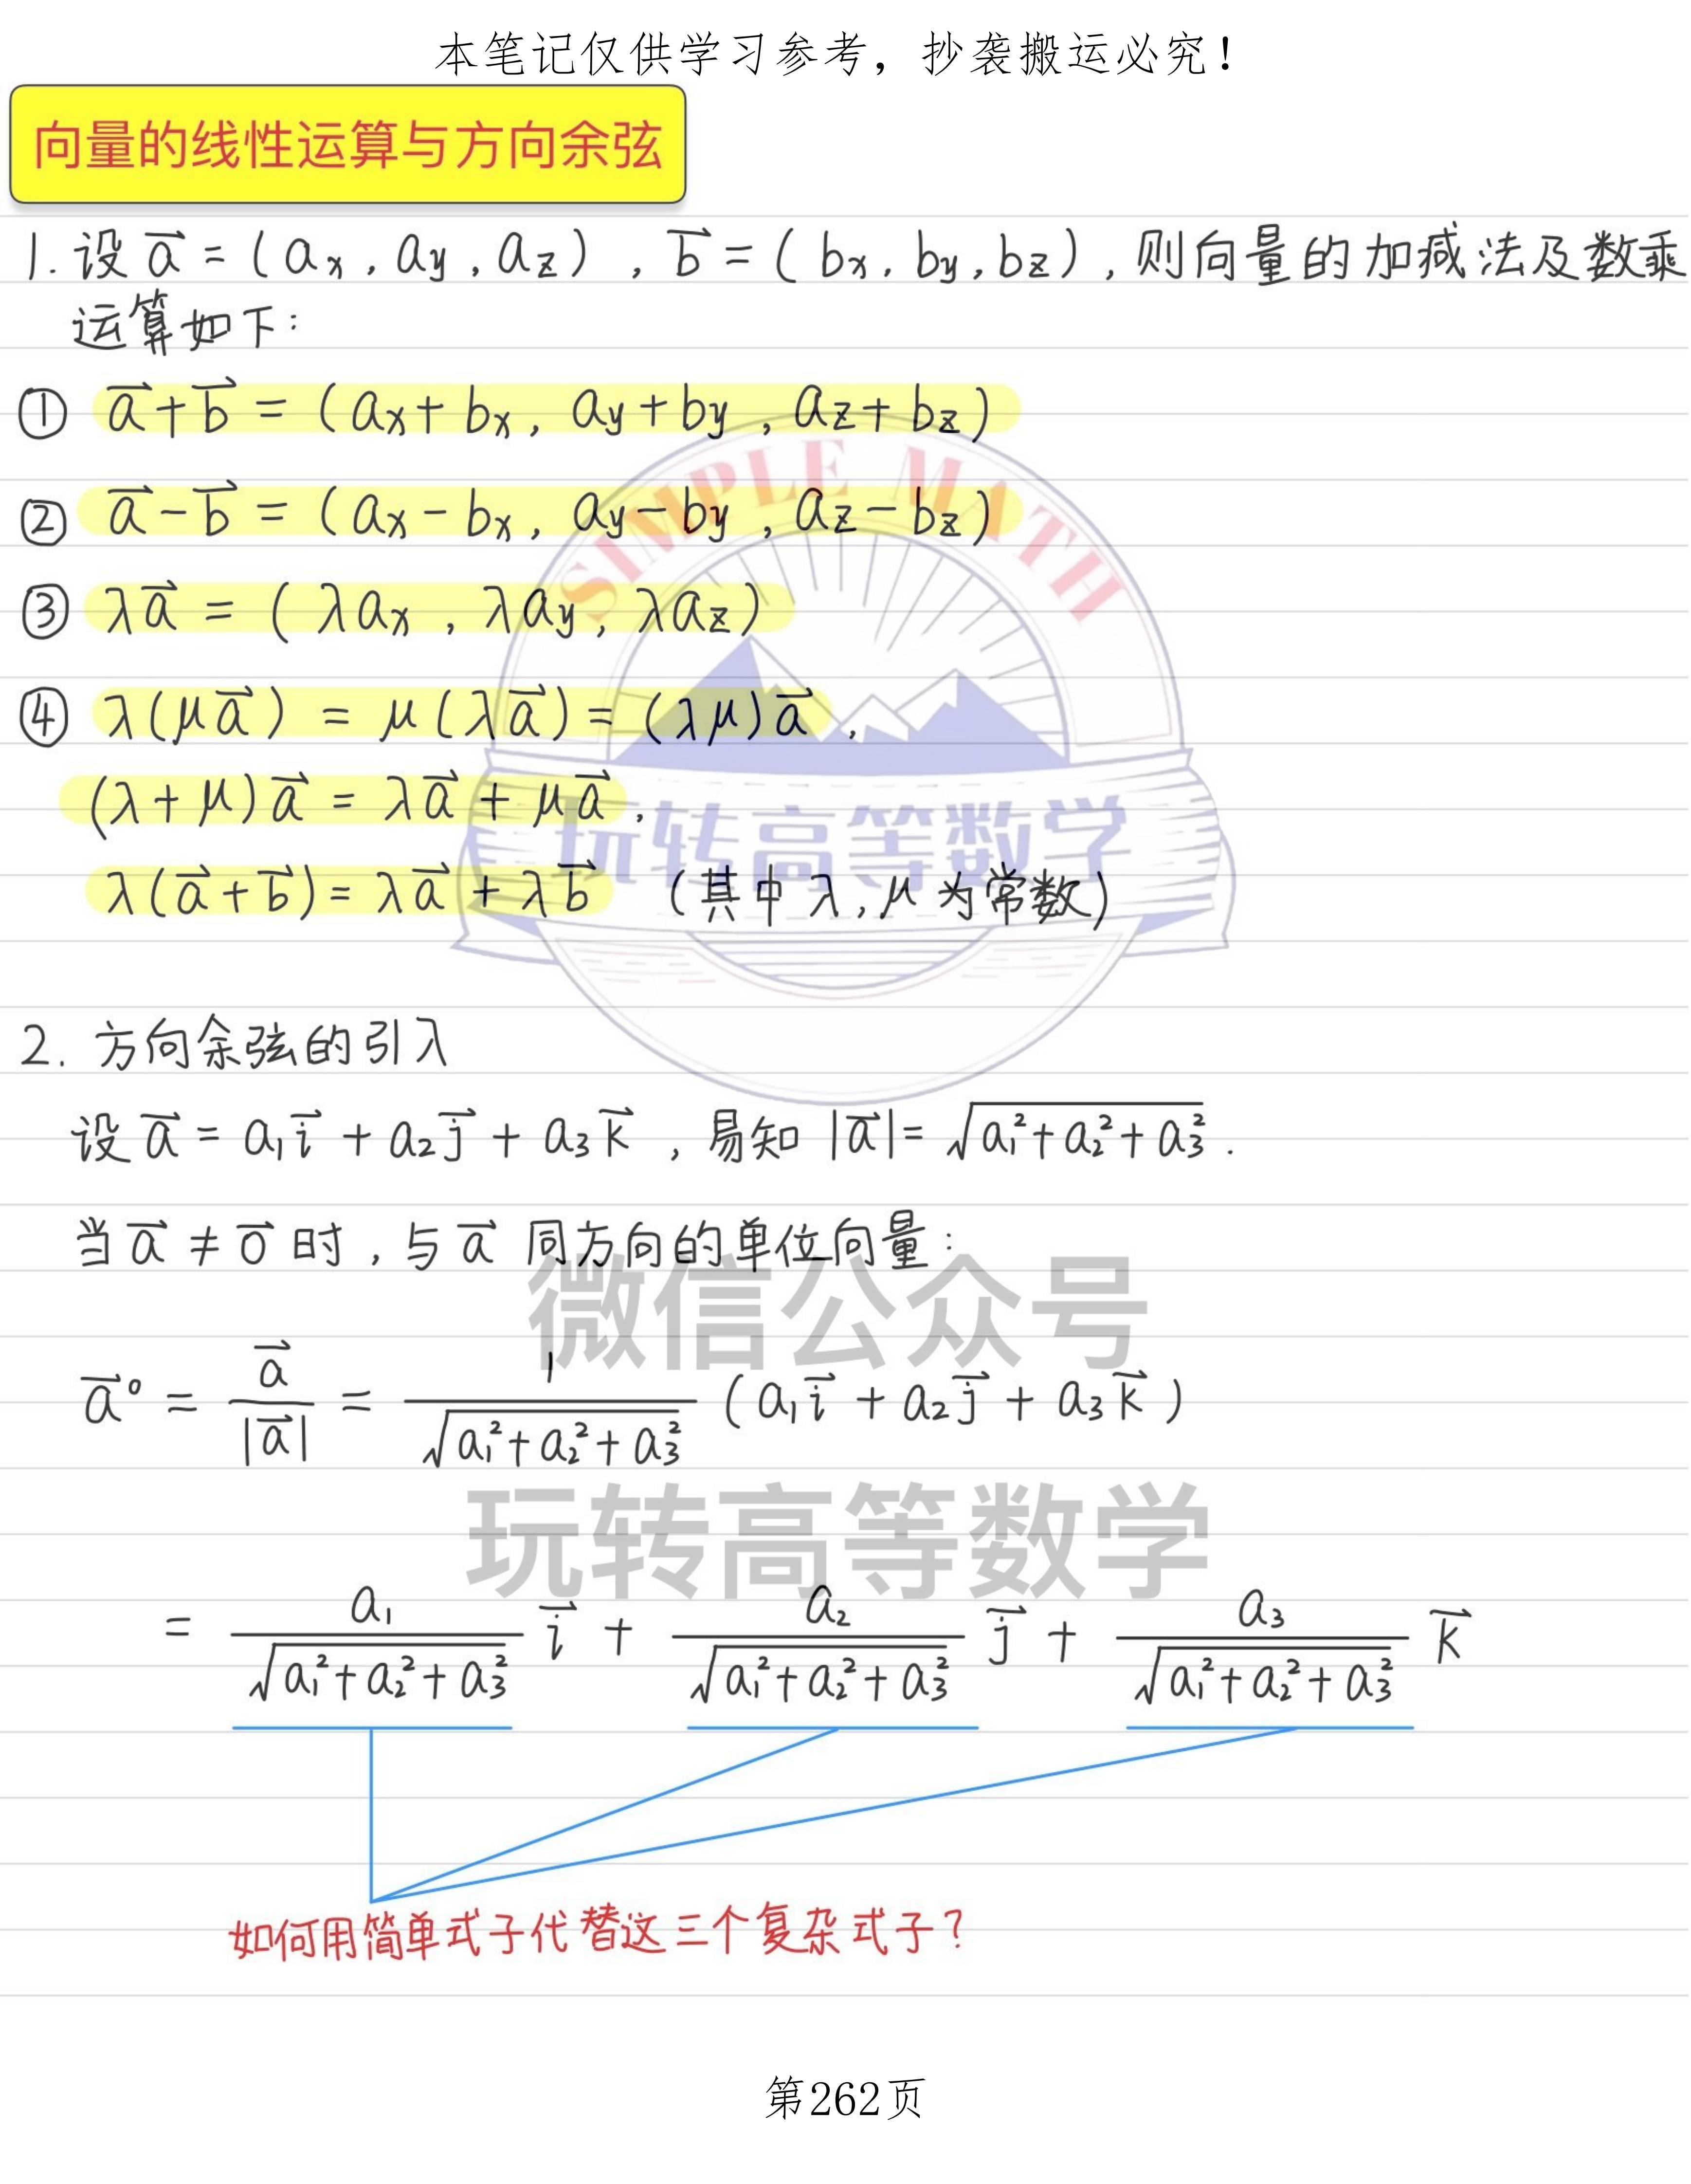 本笔记仅供学习参考，抄袭搬运必究！
向量的线性运算与方向余弦
1. 设 a⃗ = (aₓ, a_y, a_z), b⃗ = (bₓ, b_y, b_z), 则向量的加减法及数乘
运算如下:
① a⃗ + b⃗ = (aₓ + bₓ, a_y + b_y, a_z + b_z)
② a⃗ − b⃗ = (aₓ − bₓ, a_y − b_y, a_z − b_z)
③ λa⃗ = (λaₓ, λa_y, λa_z)
④ λ(μa⃗) = μ(λa⃗) = (λμ)a⃗,
(λ + μ)a⃗ = λa⃗ + μa⃗,
λ(a⃗ + b⃗) = λa⃗ + λb⃗ (其中 λ, μ 为常数)
SIMPLE MATH
玩转高等数学
2. 方向余弦的引入
设 a⃗ = a₁i⃗ + a₂j⃗ + a₃k⃗, 易知 |a⃗| = √(a₁² + a₂² + a₃²).
当 a⃗ ≠ 0⃗ 时, 与 a⃗ 同方向的单位向量:
微信公众号
a⃗° = a⃗/|a⃗| = 1/√(a₁² + a₂² + a₃²) (a₁i⃗ + a₂j⃗ + a₃k⃗)
玩转高等数学
= a₁/√(a₁² + a₂² + a₃²) i⃗ + a₂/√(a₁² + a₂² + a₃²) j⃗ + a₃/√(a₁² + a₂² + a₃²) k⃗
如何用简单式子代替这三个复杂式子?
第262页